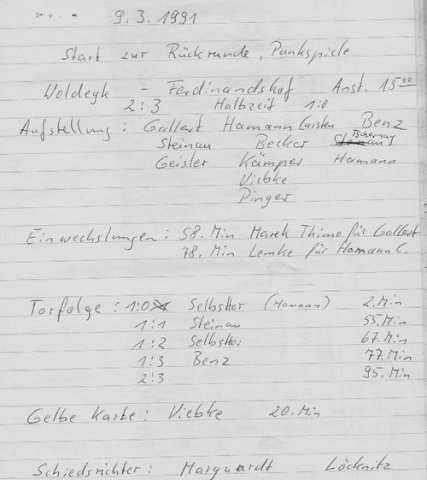 9.3.1991
Start zur Rückrunde, Punkspiele
Woldegk - Ferdinandshof Anst. 15⁰⁰
2:3 Halbzeit 1:0
Aufstellung: Gallert Hamann Carsten Benz
Steinau Becker
Geisler Kämper Hamann
Viebke
Pinger
Einwechslungen: 58. Min Marek Thimo für Gallert
78. Min Lemke für Hamann C.
Torfolge: 1:0 Selbsttor (Hamann) 2.Min
1:1 Steinau 55.Min
1:2 Selbsttor 67.Min
1:3 Benz 77.Min
2:3 95.Min
Gelbe Karte: Viebke 20.Min
Schiedsrichter: Marquardt Löcknitz